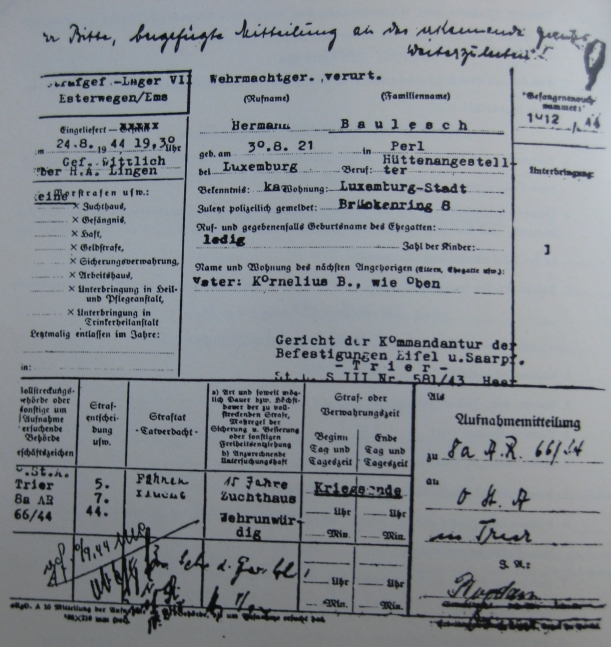 Bitte, beigefügte Mitteilung an das
Strafgef.-Lager VII
Esterwegen/Ems
Wehrmachtger. verurt.
(Rufname) (Familienname)
Hermann Baulesch
Gefangenenbuch-
nummer:
1412 / 44
Eingeliefert
am 24.8. 1944 19,30 Uhr
Gef. Wittlich
über H.A. Lingen
geb. am 30.8. 21 in Perl
bei Luxemburg Beruf: Hüttenangestell-
ter
Bekenntnis: ka Wohnung: Luxemburg-Stadt
Zuletzt polizeilich gemeldet: Brückenring 8
Unterbringung:
keine Vorstrafen usw.:
× Zuchthaus,
× Gefängnis,
× Haft,
× Geldstrafe,
× Sicherungsverwahrung,
× Arbeitshaus,
× Unterbringung in Heil-
und Pflegeanstalt,
× Unterbringung in
Trinkerheilanstalt
Letztmalig entlassen im Jahre:
in:
Ruf- und gegebenenfalls Geburtsname des Ehegatten:
ledig Zahl der Kinder:
Name und Wohnung des nächsten Angehörigen (Eltern, Ehegatte usw.):
Vater: Kornelius B., wie oben
Gericht der Kommandantur der
Befestigungen Eifel u.Saarpf.
- Trier -
St.L. S III Nr. 581/43 Heer
Vollstreckungs-
behörde oder
sonstige um
Aufnahme
ersuchende
Behörde
Geschäftszeichen
Straf-
entschei-
dung
usw.
Straftat
-Tatverdacht-
a) Art und soweit mög-
lich Dauer bzw. Höchst-
dauer der zu voll-
streckenden Strafe,
Maßregel der
Sicherung u. Besserung
oder sonstigen
Freiheitsentziehung
b) Anzurechnende
Untersuchungshaft
Straf- oder
Verwahrungszeit
Beginn
Tag und
Tageszeit
Ende
Tag und
Tageszeit
O.St.A.
Trier
8a AR
66/44
5.
7.
44.
Fahnen
flucht
15 Jahre
Zuchthaus
Wehrunwür-
dig
Kriegsende
Uhr Uhr
Min. Min.
Uhr Uhr
Min. Min.
Als
Aufnahmemitteilung
zu 8a A.R. 66/44
an
O St. A
in Trier